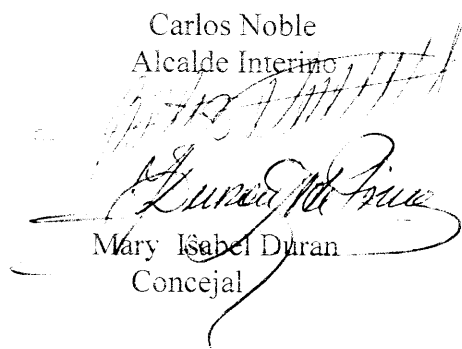 Carlos Noble
Alcalde Interino
Mary Isabel Duran
Concejal